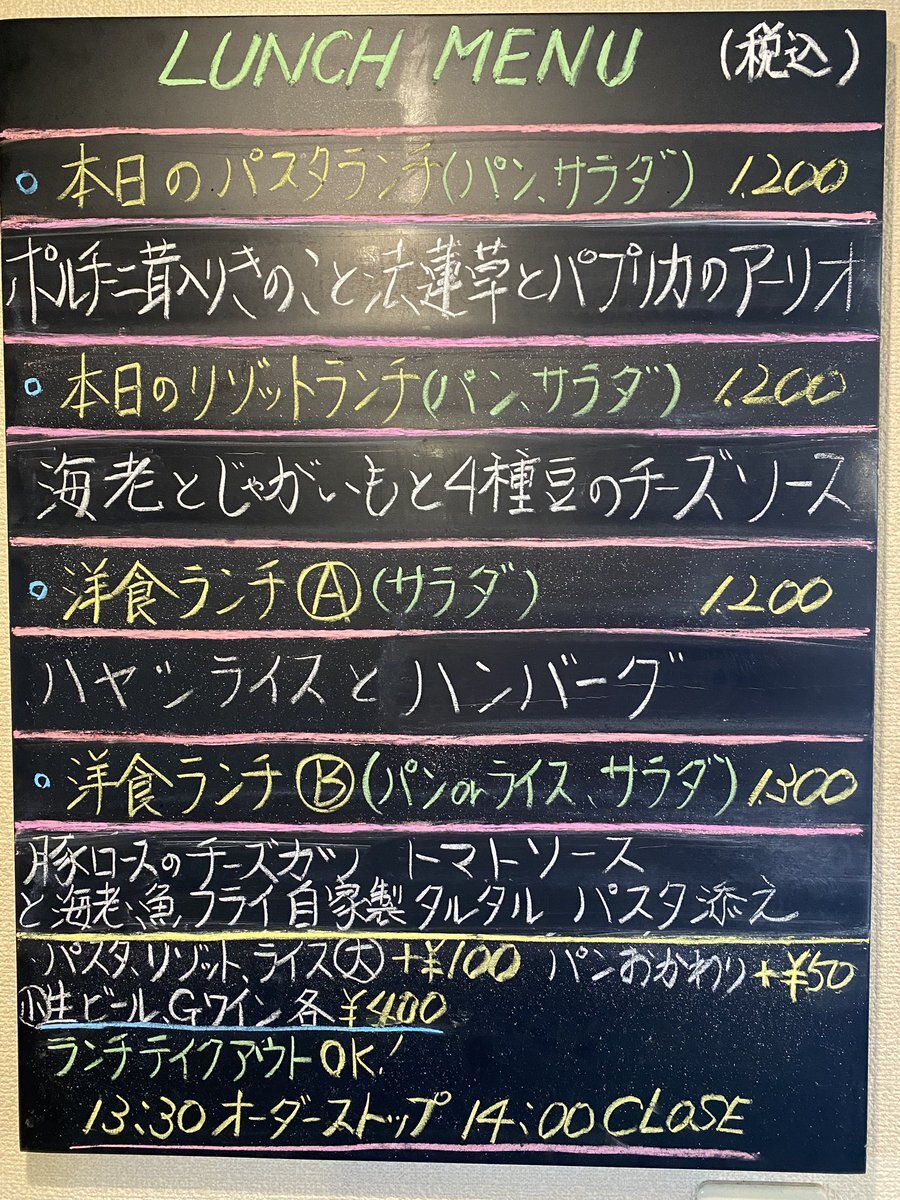 LUNCH MENU (税込)
本日のパスタランチ(パン、サラダ) 1.200
ポルチーニ茸入りきのこと法蓮草とパプリカのアーリオ
本日のリゾットランチ(パン、サラダ) 1.200
海老とじゃがいもと4種豆のチーズソース
洋食ランチⒶ(サラダ) 1.200
ハヤシライスとハンバーグ
洋食ランチⒷ(パンorライス、サラダ) 1.300
豚ロースのチーズカツ トマトソース
と海老、魚フライ自家製タルタル パスタ添え
パスタ、リゾット、ライス㊛+¥100 パンおかわり+¥50
小生ビール、Gワイン各¥400
ランチテイクアウトOK!
13:30オーダーストップ 14:00CLOSE